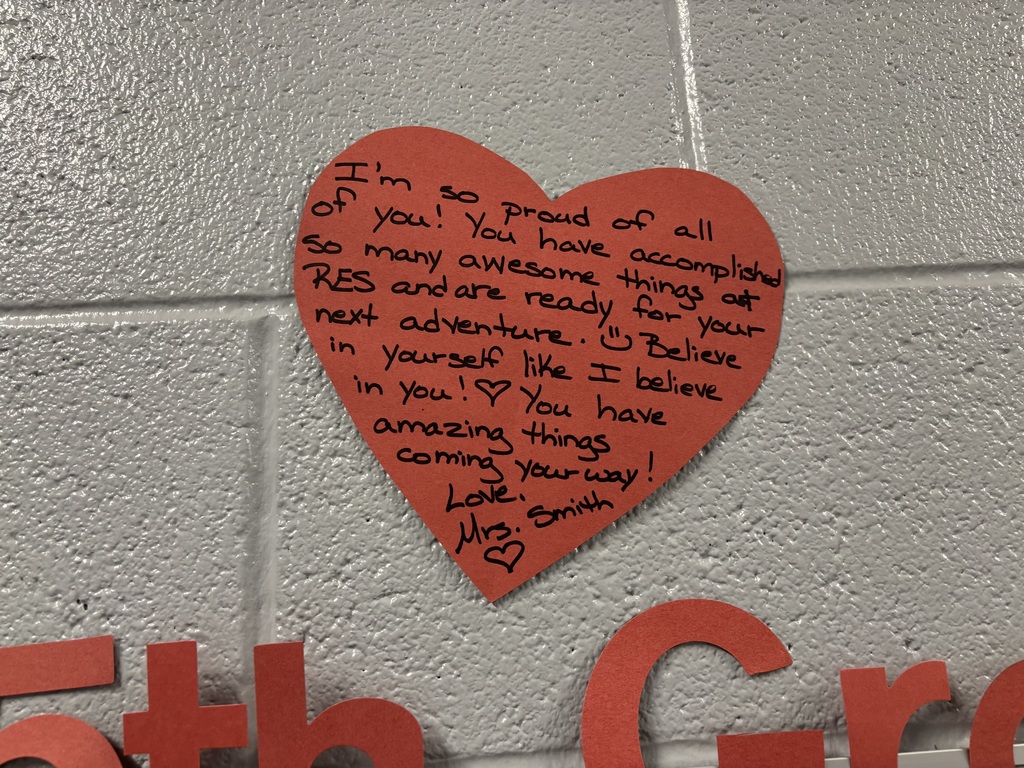 I'm so proud of all
of you! You have accomplished
so many awesome things at
RES and are ready for your
next adventure. ☺ Believe
in yourself like I believe
in you! ♡ You have
amazing things
coming your way!
Love,
Mrs. Smith
♡
5th Gr